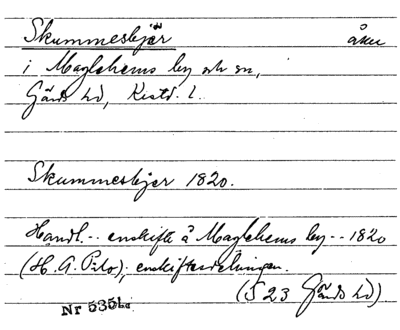 Skummesbjär åker
i Maglehems by och sn,
Gärds hd, Kristi. l.
Skummesbjer 1820.
Handl. -- enskifte å Maglehems by -- 1820
(H. A. Pihl), enskiftesdelningen.
(S 23 Gärds hd)
Nr 535